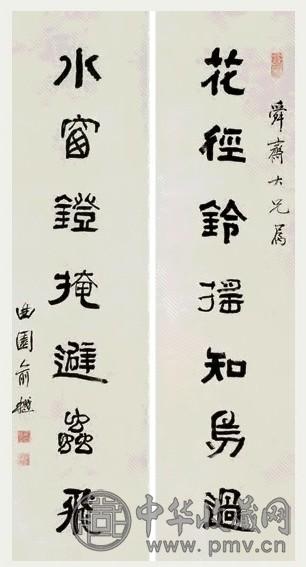 舜齋大兄屬
花徑鈴搖知鳥過
水窗鐙掩避蟲飛
曲園俞樾
中华收藏网
www.pmv.cn